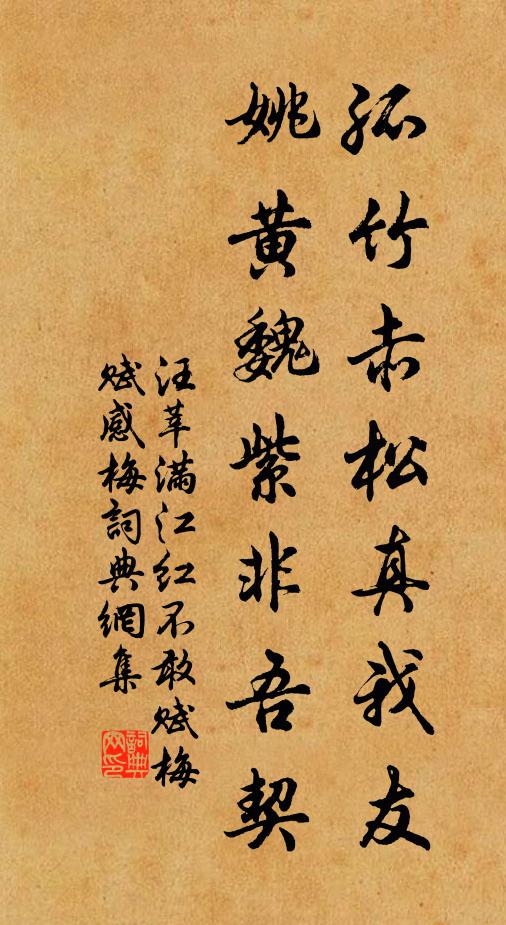 孤竹赤松真我友
姚黄魏紫非吾契
汪莘满江红不敢赋梅
赋感梅詞典網集
詞典網印